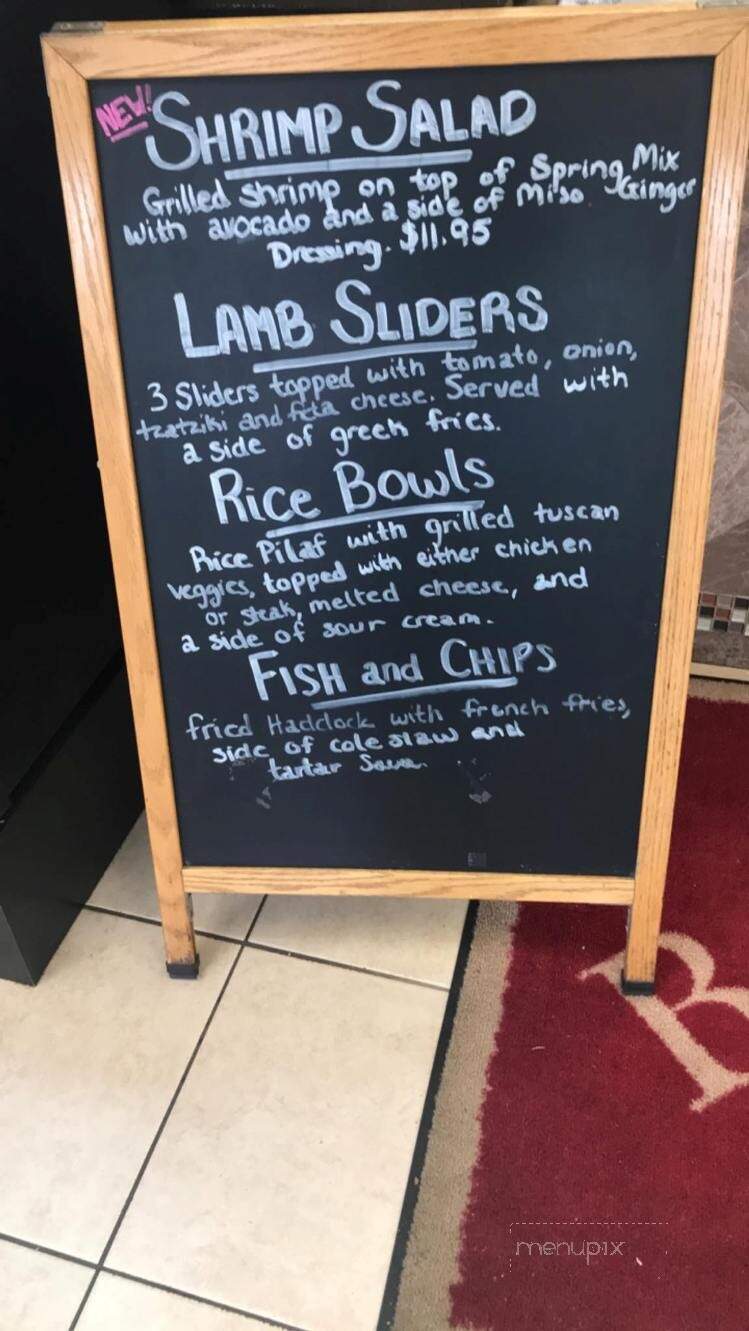 NEW!
SHRIMP SALAD
Grilled shrimp on top of Spring Mix
with avocado and a side of Miso Ginger
Dressing. $11.95
LAMB SLIDERS
3 Sliders topped with tomato, onion,
tzatziki and feta cheese. Served with
a side of greek fries.
Rice Bowls
Rice Pilaf with grilled tuscan
veggies, topped with either chicken
or steak, melted cheese, and
a side of sour cream.
FISH and CHIPS
fried Haddock with french fries,
side of cole slaw and
tartar
B
menupix